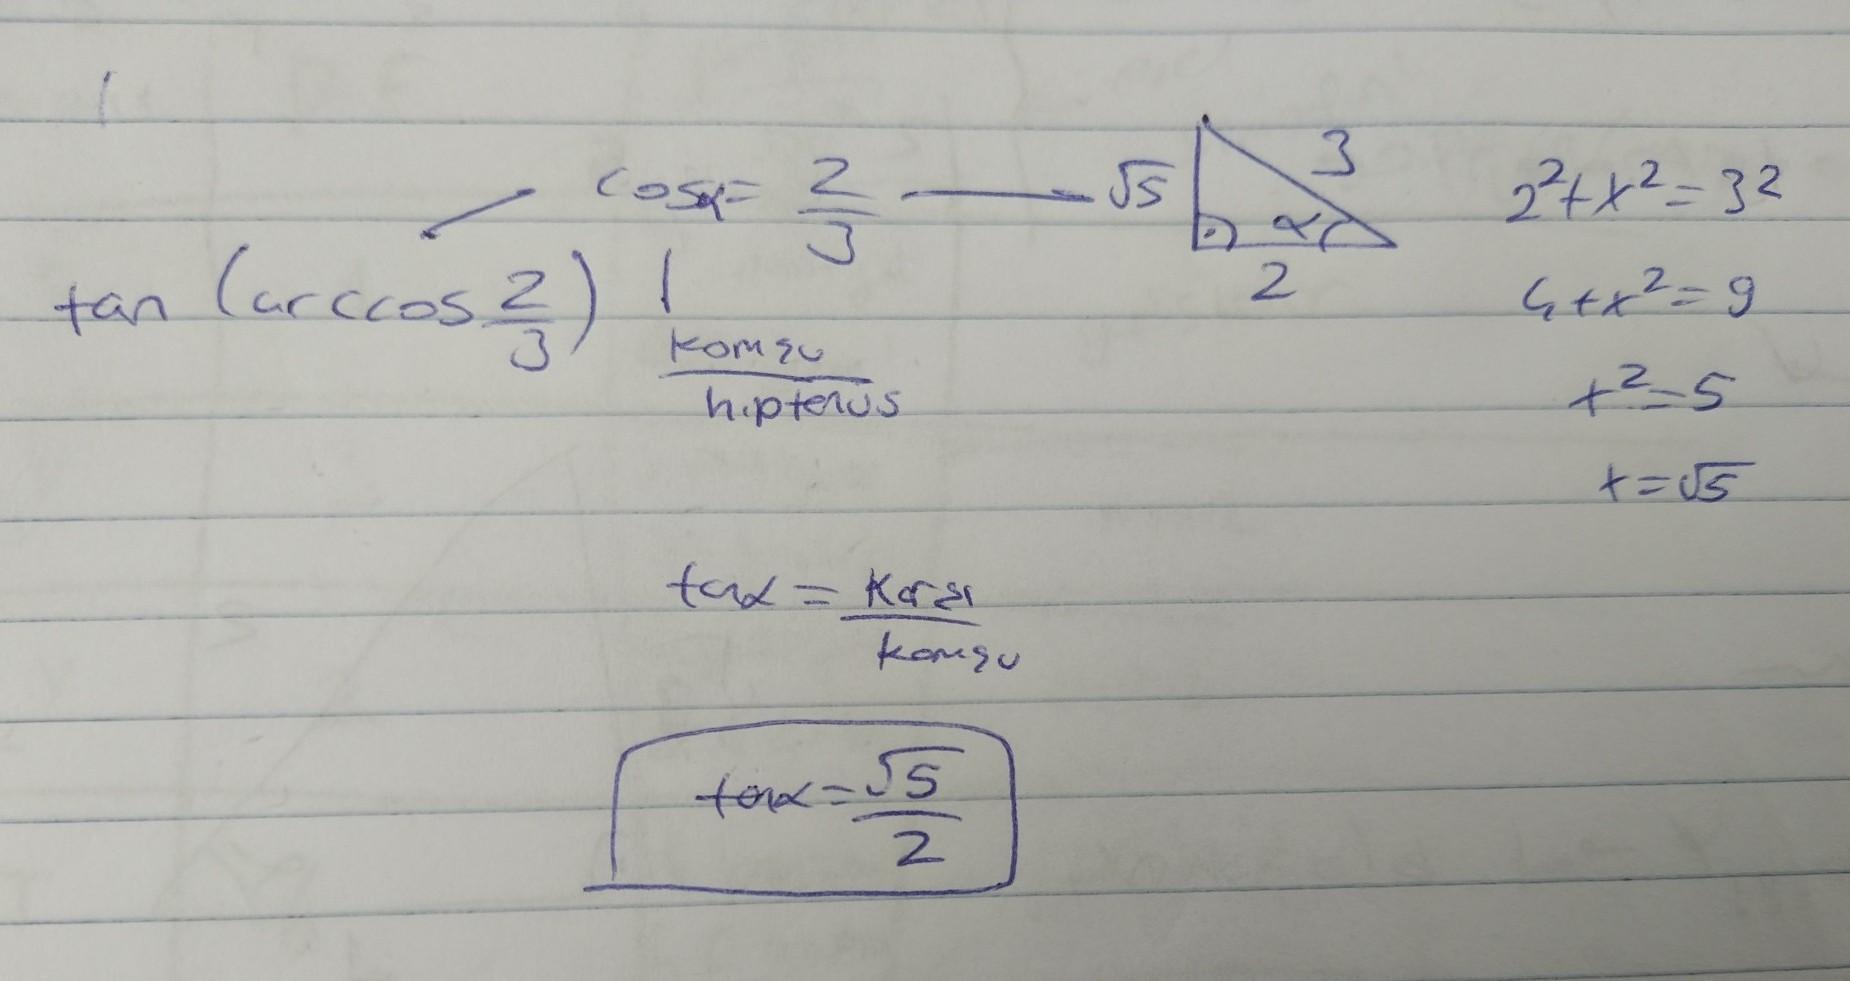 cosα = 2/3 — √5 3 α 2
tan (arccos 2/3)
komşu / hiptenüs
2² + x² = 3²
4 + x² = 9
x² = 5
x = √5
tanα = Karşı / komşu
tanα = √5 / 2